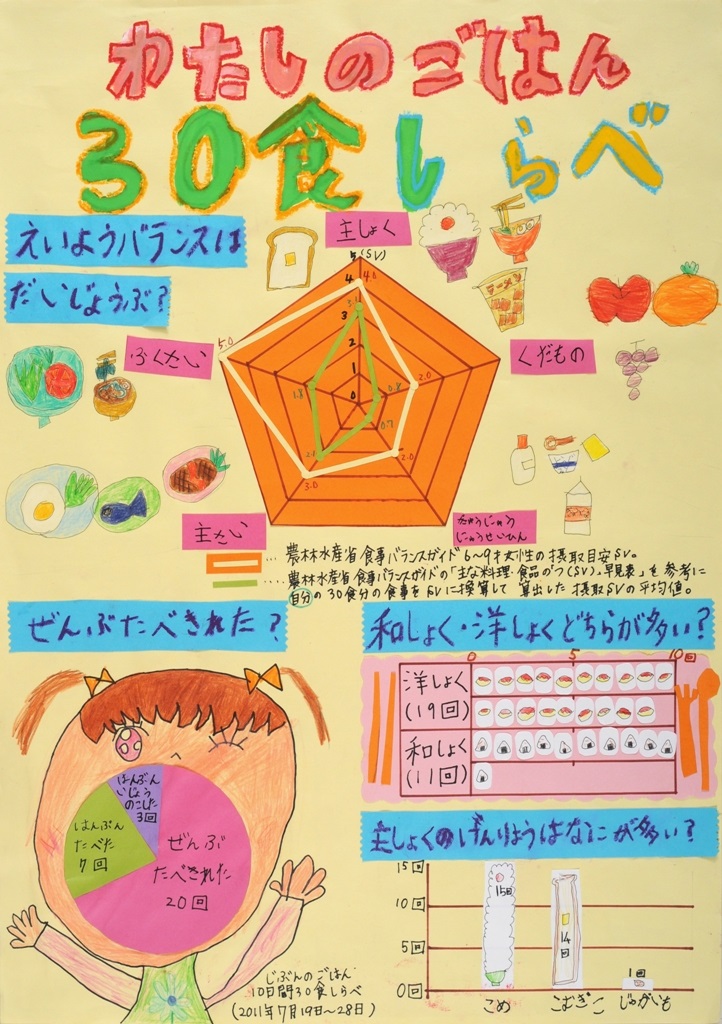 わたしのごはん
30食しらべ
えいようバランスは
だいじょうぶ?
主しょく
5(SV)
4 4.0
3.1
3
2
1
0
ラーメン
ふくさい
5.0
くだもの
1.8
0.8
2.0
0.7
2.1
2.0
3.0
主さい
ぎゅうにゅう
にゅうせいひん
…農林水産省食事バランスガイド6〜9才女性の摂取目安SV。
…農林水産省食事バランスガイドの「主な料理・食品の「つ(SV)」早見表」を参考に
自分の30食分の食事をSVに換算して算出した摂取SVの平均値。
ぜんぶたべきれた?
はんぶん
いじょう
のこした
3回
はんぶん
たべた
7回
ぜんぶ
たべきれた
20回
じぶんのごはん
10日間30食しらべ
(2011年7月19日〜28日)
和しょく・洋しょくどちらが多い?
0 5 10回
洋しょく
(19回)
和しょく
(11回)
主しょくのげんりょうはなにが多い?
15回
10回
5回
0回
15回
14回
1回
こめ こむぎこ じゃがいも